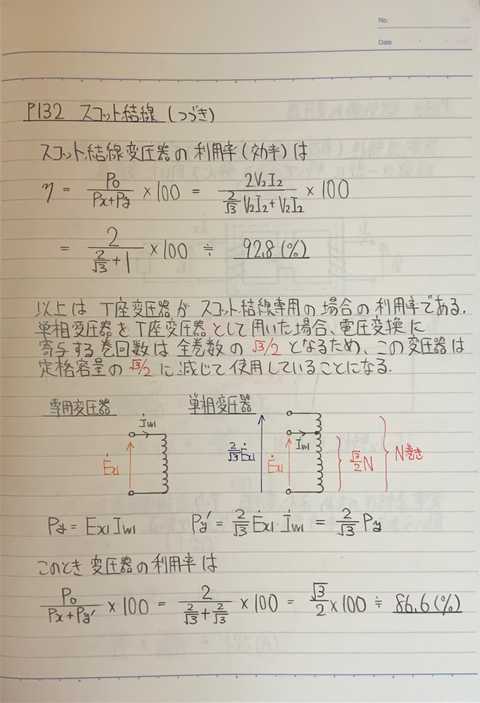 No.
Date
P132 スコット結線 (つづき)
スコット結線変圧器の利用率(効率)は
η = P0/(Px+Py) ×100 = 2V2I2/(2/√3 V2I2+V2I2) ×100
= 2/(2/√3+1) ×100 ≑ 92.8(%)
以上は T座変圧器が スコット結線専用の場合の利用率である.
単相変圧器を T座変圧器として用いた場合、電圧変換に
寄与する巻回数は 全巻数の √3/2 となるため、この変圧器は
定格容量の √3/2 に減じて使用していることになる.
専用変圧器 単相変圧器
İw1 İw1
Ėx1 2/√3 Ėx1 Ėx1 √3/2 N N巻き
Py = Ex1 Iw1 Py′ = 2/√3 Ėx1 İw1 = 2/√3 Py
このとき 変圧器の利用率は
P0/(Px+Py′) ×100 = 2/(2/√3+2/√3) ×100 = √3/2 ×100 ≑ 86.6(%)